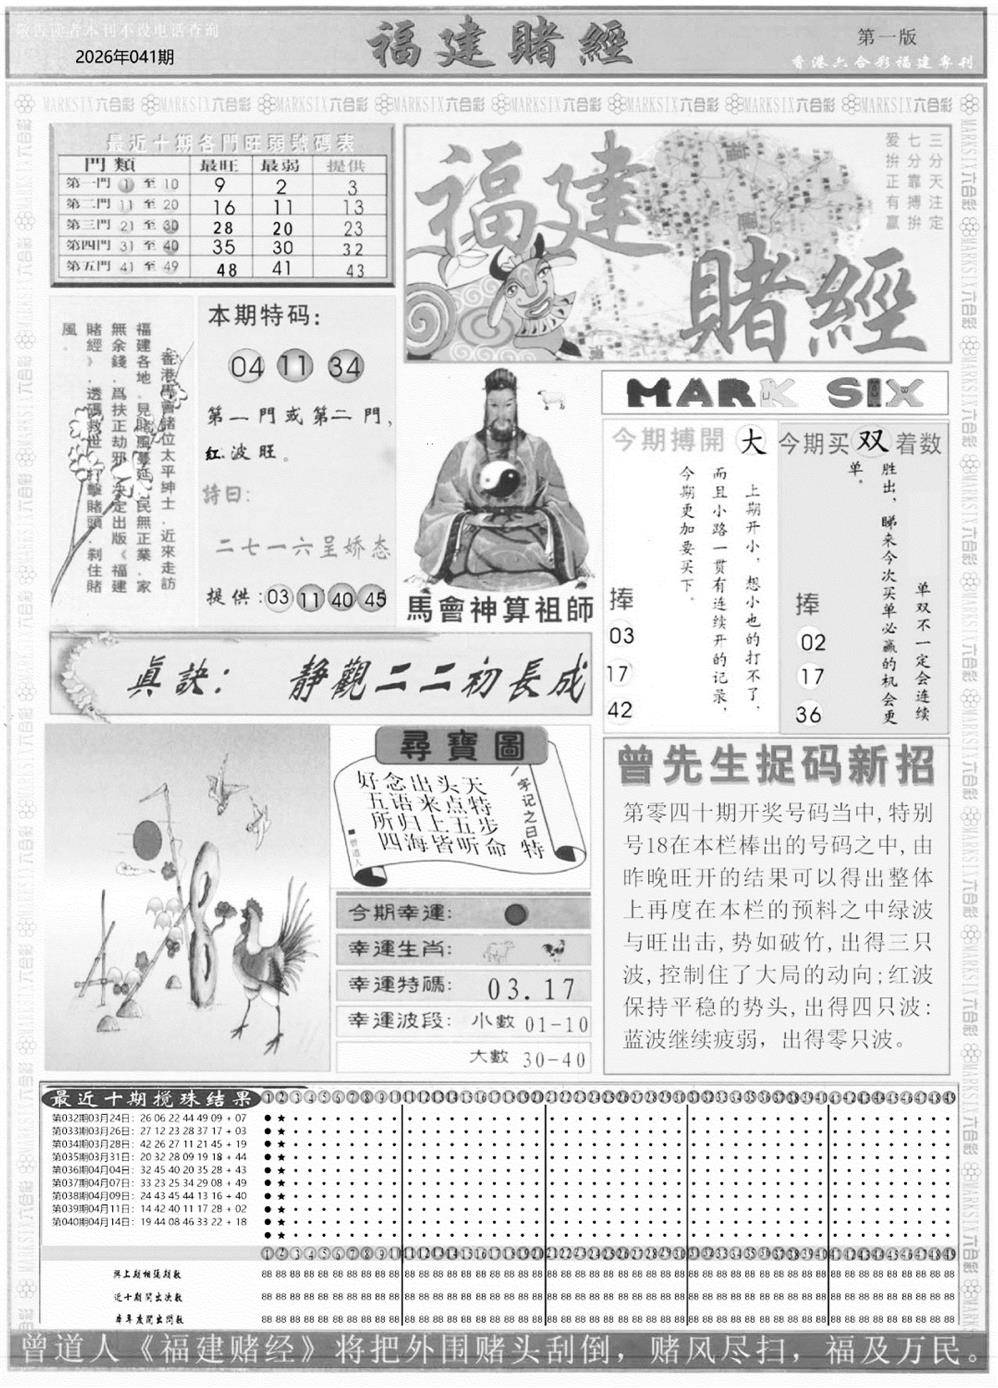 敬告读者本刊不设电话查询
2026年041期
福建賭經
第一版
香港六合彩福建專刊
MARKSIX六合彩 MARKSIX六合彩 MARKSIX六合彩 MARKSIX六合彩 MARKSIX六合彩 MARKSIX六合彩 MARKSIX六合彩 MARKSIX六合彩
最近十期各門旺弱號碼表
門類 最旺 最弱 提供
第一門 1 至 10 9 2 3
第二門 11 至 20 16 11 13
第三門 21 至 30 28 20 23
第四門 31 至 40 35 30 32
第五門 41 至 49 48 41 43
福建
賭經
三分天注定
七分靠搏拚
爱拚正有赢
香港馬會諸位太平紳士.近來走訪
福建各地.見賭風蔓延.民無正業.家
無余錢.爲扶正劫邪.决定出版《福建
賭經》.透碼救世.打擊賭頭.剎住賭
風.
本期特码：
04 11 34
第一門或第二門，
红.波旺。
詩曰：
二七一六呈娇态
提供：03 11 40 45
馬會神算祖師
MARK SIX
今期搏開 大
上期开小，想小也的打不了，
而且小路一贯有连续开的记录，
今期更加要买下。
捧
03
17
42
今期买 双 着数
单双不一定会连续
胜出，睇来今次买单必赢的机会更
单。
捧
02
17
36
真訣： 静觀二二初長成
尋寶圖
好念出头天
五语来点特
所归上五步
四海皆听命
一字记之曰特
■曾道人
今期幸運：
幸運生肖：
幸運特碼： 03.17
幸運波段： 小數 01-10
大數 30-40
曾先生捉码新招
第零四十期开奖号码当中,特别
号18在本栏棒出的号码之中,由
昨晚旺开的结果可以得出整体
上再度在本栏的预料之中绿波
与旺出击,势如破竹,出得三只
波,控制住了大局的动向;红波
保持平稳的势头,出得四只波:
蓝波继续疲弱，出得零只波。
最近十期搅珠结果
第032期03月24日：26 06 22 44 49 09 + 07
第033期03月26日：27 12 23 28 37 17 + 03
第034期03月28日：42 26 27 11 21 45 + 19
第035期03月31日：20 32 28 09 19 18 + 44
第036期04月04日：32 45 40 20 35 28 + 43
第037期04月07日：33 23 25 34 29 08 + 49
第038期04月09日：24 43 45 44 13 16 + 40
第039期04月11日：14 42 40 11 17 28 + 02
第040期04月14日：19 44 08 46 33 22 + 18
與上期相隔期數
近十期開出次數
本年度開出間數
曾道人《福建赌经》将把外围赌头刮倒，赌风尽扫，福及万民。